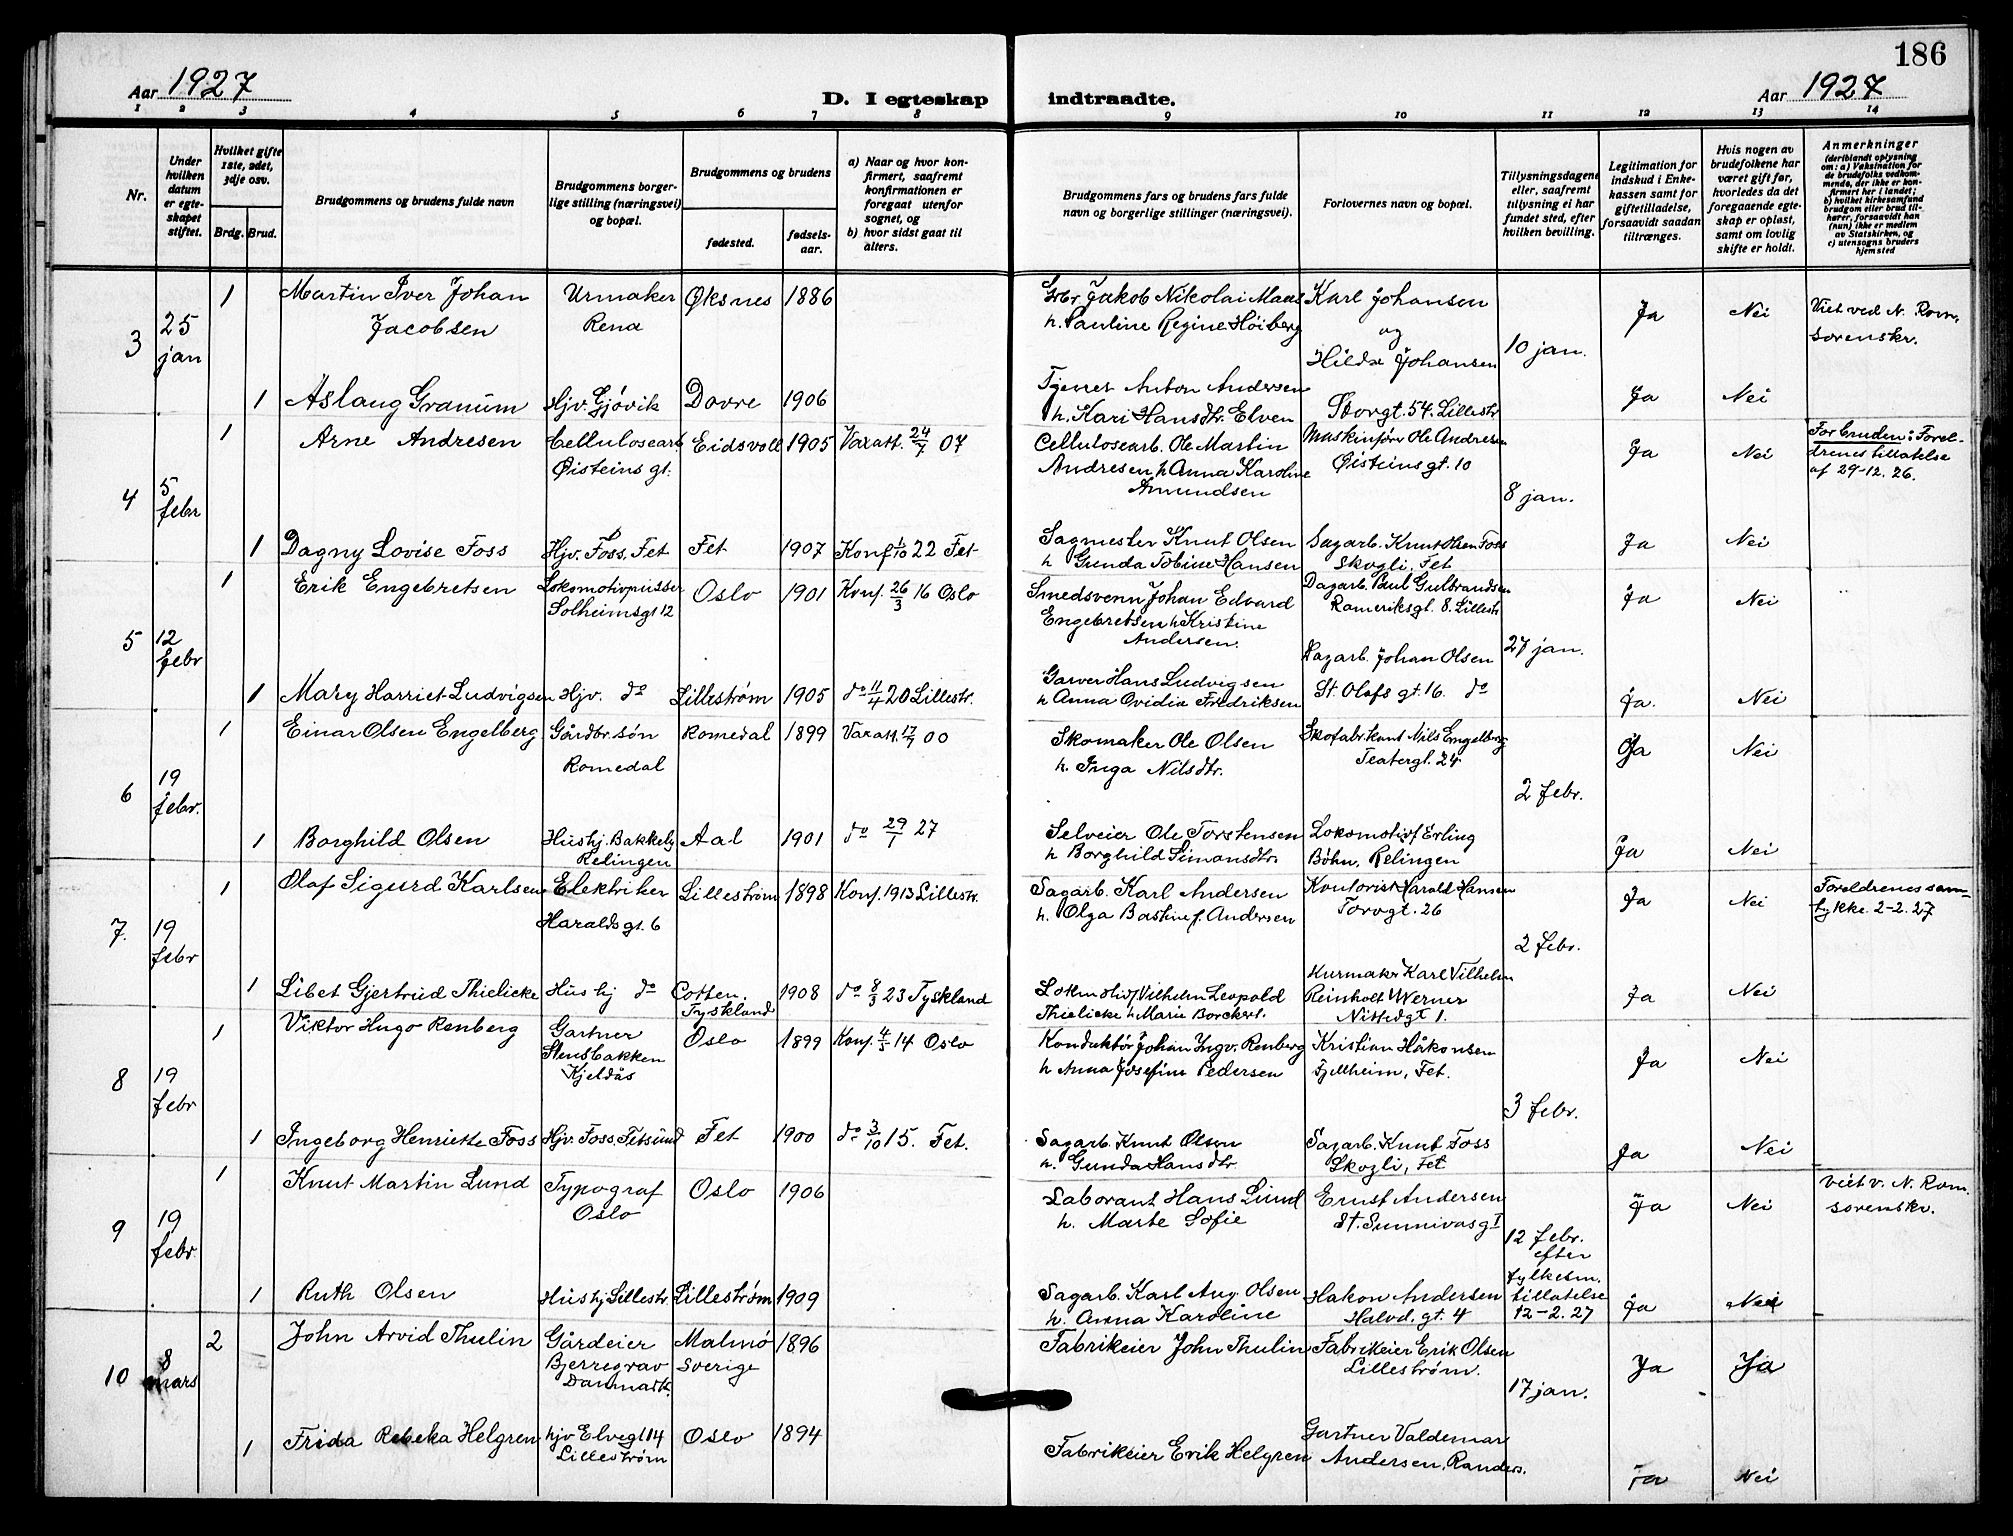 186
Aar 1927
D. I egteskap
indtraadte.
Aar 1927
1 2 3 4 5 6 7 8 9 10 11 12 13 14
Nr.
Under hvilken datum er egteskapet stiftet.
Hvilket gifte 1ste, 2det, 3dje osv.
Brdg. Brud.
Brudgommens og brudens fulde navn
Brudgommens borgerlige stilling (næringsvei) og bopæl.
Brudgommens og brudens
fødested.
fødselsaar.
a) Naar og hvor konfirmert, saafremt konfirmationen er foregaat utenfor sognet, og
b) hvor sidst gaat til alters.
Brudgommens fars og brudens fars fulde navn og borgerlige stillinger (næringsvei).
Forlovernes navn og bopæl.
Tillysningsdagene eller, saafremt tillysning ei har fundet sted, efter hvilken bevilling.
Legitimation for indskud i Enkekassen samt for giftetilladelse, forsaavidt saadan tiltrænges.
Hvis nogen av brudefolkene har været gift før, hvorledes da det foregaaende egteskap er opløst, samt om lovlig skifte er holdt.
Anmerkninger
(deriblandt oplysning om: a) Vaksination for de brudefolks vedkommende, der ikke er konfirmert her i landet;
b) hvilket kirkesamfund brudgom eller brud tilhører, forsaavidt han (hun) ikke er medlem av Statskirken, og
c) utensogns bruders hjemsted
3
25 jan
1 Martin Iver Johan Jacobsen
Urmaker Rena
Øksnes 1886
Grbr. Jakob Nikolai Maas
h. Pauline Regine Høiberg
Karl Johansen
og
Hilda Johansen
10 jan.
Ja Nei
Viet ved N. Rom. sorenskr.
1 Aslaug Granum
Hjv. Gjøvik
Dovre 1906
Anton Andersen
h. Kari Hansdtr. Elven
Storgt. 54. Lillestr
Ja Nei
4
5 febr
1 Arne Andresen
Cellulosearb. Øisteins gt.
Eidsvoll 1905
Vaxatt. 24/7 07
Cellulosearb. Ole Martin
Andresen h Anna Karoline
Amundsen
Maskinfører Ole Andresen
Øisteins gt. 10
8 jan.
Ja Nei
For bruden: Foreldrenes tillatelse af 29-12. 26.
1 Dagny Lovise Foss
Hjv. Foss, Fet
Fet 1907
Konf 1/10 22 Fet
Sagmester Knut Olsen
h Gunda Tobine Hansen
Sagarb. Knut Olsen Foss
Skogli, Fet
Ja Nei
5
12 febr
1 Erik Engebretsen
Lokomotivpusser
Solheimsgt 12
Oslo 1901
Konf. 26/3 16 Oslo
Smedsvenn Johan Edvard
Engebretsen h Kristine
Andersen.
Dagarb. Paul Gulbrandsen
Romeriksgt. 8. Lillestr
27 jan.
Ja Nei
1 Mary Harriet Ludvigsen
Hjv. do
Lillestrøm 1905
do 11/4 20 Lillestr.
Garver Hans Ludvigsen
h Anna Ovidia Fredriksen
Dagarb. Johan Olsen
St. Olafs gt. 16. do
Ja. Nei
6
19 febr.
1 Einar Olsen Engelberg
Gårdbr. søn
Romedal
Romedal 1899
Vaxatt. 17/7 00
Skomaker Ole Olsen
h. Inga Nilsdtr.
Skofabrikant Nils Engelberg
Teatergt. 24
2 febr.
Ja Nei
1 Borghild Olsen
Hushj. Bakkeby
Relingen
Aal 1901
do 29/1 27
Selveier Ole Torstensen
h Borghild Simansdtr.
Lokomotivf Erling
Bøhn, Relingen
Ja Nei
7.
19 febr
1 Olaf Sigurd Karlsen
Elektriker
Haralds gt. 6
Lillestrøm 1898
Konf. 1913 Lillestr.
Sagarb. Karl Andersen
h. Olga Bastine f. Andersen
Kontorist Harald Hansen
Torvgt. 26
2 febr.
Ja Nei
Foreldrenes samtykke. 2-2. 27
1 Libet Gjertrud Thielicke
Hushj do
Cotten. Tyskland 1908
do 8/3 23 Tyskland
Lokmotivf Vilhelm Leopold
Thielicke h Marie Borckert.
Kurmaker Karl Vilhelm
Reinholt Werner
Nittedgt 1.
Ja Nei
8
19 febr
1 Viktor Hugo Renberg
Gartner
Stensbakken
Kjeldås
Oslo 1899
Konf. 4/5 14 Oslo
Konduktør Johan Ingv. Renberg
h Anna Josefine Pedersen
Kristian Håkonsen
Fjellheim, Fet.
3 febr.
Ja Nei
1 Ingeborg Henriette Foss
Hjv. Foss, Fetsund
Fet 1900
do 3/10 15. Fet.
Sagarb. Knut Olsen
h. Gunda Hansdtr
Sagarb. Knut Foss
Skogli, Fet
Ja Nei
9
19 febr
1 Knut Martin Lund
Typograf
Oslo
Oslo 1906
Laborant Hans Lund
h. Marte Sofie
Ernst Andersen
St. Sunnivasgt
12 febr.
efter
fylkesm.
tillatelse
12-2. 27
Ja Nei
Viet v. N. Rom. sorenskr.
1 Ruth Olsen
Hushj Lillestr.
Lillestrøm 1909
Sagarb. Karl Aug. Olsen
h. Anna Karoline
Hakon Andersen
Halvd. gt. 4
Ja Nei
10
8 mars
2 John Arvid Thulin
Gårdeier
Bjerregrav
Danmark.
Malmø Sverige 1896
Fabrikeier John Thulin
Fabrikeier Erik Olsen
Lillestrøm.
17 jan.
Ja Ja
1 Frida Rebeka Helgren
hjv Elvegt 14
Lillestrøm
Oslo 1894
Fabrikeier Erik Helgren
Gartner Valdemar
Andersen, Randers.
Ja Nei